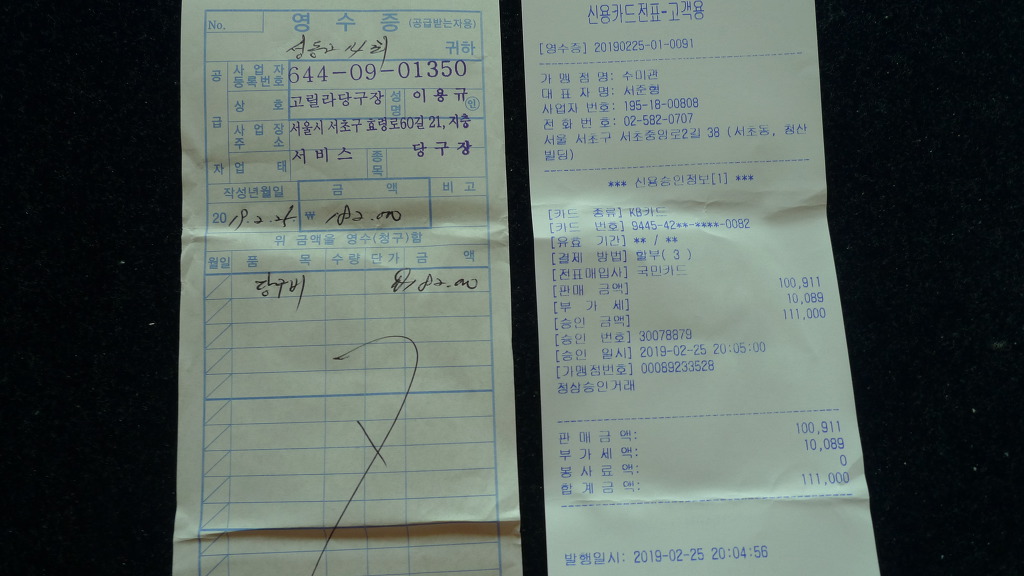 No.
영 수 증 (공급받는자용)
귀하
공 급 자
사업자 등록번호 644-09-01350
상 호 고릴라당구장 성명 이용규 인
사업장 주소 서울시 서초구 효령로60길 21, 지층
업 태 서비스 종목 당구장
작성년월일 금 액 비 고
2019.2.25 ₩ 182.000
위 금액을 영수(청구)함
월일 품 목 수량 단가 금 액
당구비 ₩182.000
신용카드전표-고객용
[영수증] 20190225-01-0091
가 맹 점 명: 수미관
대 표 자 명: 서준형
사업자 번호: 195-18-00808
전 화 번 호: 02-582-0707
서울 서초구 서초중앙로2길 38 (서초동, 청산
빌딩)
*** 신용승인정보[1] ***
[카드 종류] KB카드
[카드 번호] 9445-42**-****-0082
[유효 기간] ** / **
[결제 방법] 할부( 3 )
[전표매입사] 국민카드
[판매 금액] 100,911
[부 가 세] 10,089
[승인 금액] 111,000
[승인 번호] 30078879
[승인 일시] 2019-02-25 20:05:00
[가맹점번호] 00089233528
정상승인거래
판 매 금 액: 100,911
부 가 세 액: 10,089
봉 사 료 액: 0
합 계 금 액: 111,000
발행일시: 2019-02-25 20:04:56